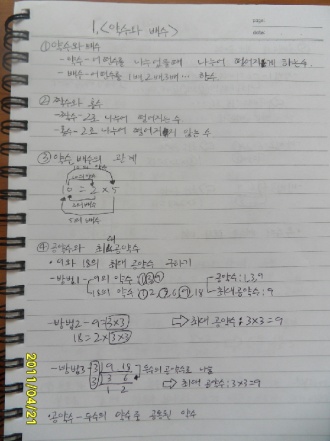 1. <약수와 배수>
① 약수와 배수
- 약수 - 어떤수를 나누었을때 나누어 떨어지게 하는수.
- 배수 - 어떤수를 1배, 2배, 3배 …
② 짝수와 홀수
- 짝수 - 2로 나누어 떨어지는 수
- 홀수 - 2로 나누어 떨어지지 않는 수
③ 약수, 배수의 관계
10 = 2 × 5
④ 공약수와 최대공약수
• 9와 18의 최대 공약수 구하기
- 방법1 - 9의 약수 1 3 9 - 공약수: 1, 3, 9
18의 약수 1 2, 3, 6, 9, 18 - 최대공약수: 9
- 방법2 - 9=3×3 ⇨ 최대 공약수: 3×3=9
18 = 2×3×3
- 방법3 - 3) 9 18
3) 3 6 ⇨ 최대 공약수: 3×3=9
1 2
• 공약수 - 두수의 약수 중 공통된 약수
2011/04/21